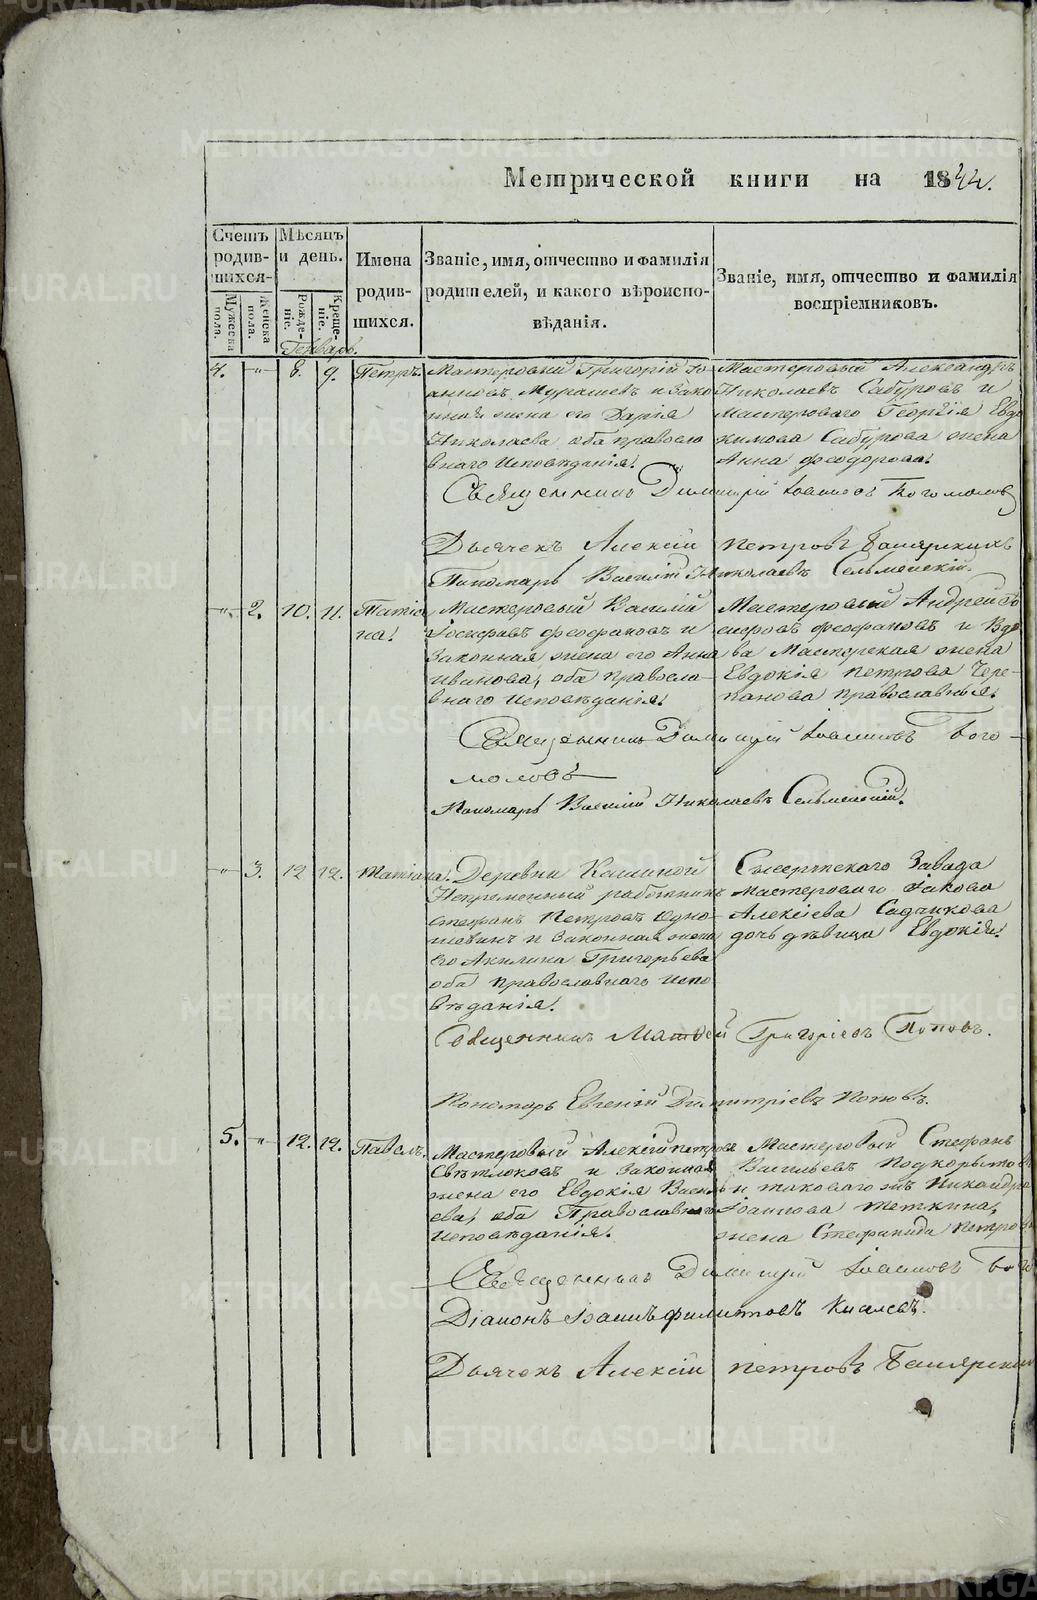 Метрической книги на 1844.
Счетъ родившихся.
Мужеска пола.
Женска пола.
Мѣсяцъ и день.
Рожденіе.
Крещеніе.
Имена родившихся.
Званіе, имя, отчество и фамилія родителей, и какого вѣроисповѣданія.
Званіе, имя, отчество и фамилія воспріемниковъ.
Генварь.
4. -"- 8. 9. Петръ.
Мастеровый Григорій Іо-
анновъ Мурашевъ и Зако
нная жена его Дарія
Николаева оба правосла
внаго Исповѣданія.
Мастеровый Александръ
Николаевъ Сабуровъ и
мастероваго Георгія Евдо
кимова Сабурова жена
Анна Феодорова.
Священникъ Димитрій Іоанновъ Богомоловъ
Дьячекъ Алексій Петровъ
Пономарь Василій Николаевъ Сельменскій.
-"- 2. 10. 11. Татіа
на.
Мастеровый Василій
Іосифовъ Феофановъ и
Законная жена его Анна
Иванова, оба правосла-
внаго Исповѣданія.
Мастеровый Андрей Іо
сифовъ Феофановъ и Вдо
ва Мастерская жена
Евдокія Петрова Чере-
панова Православныя.
Священникъ Димитрій Іоанновъ Бого-
моловъ
Пономарь Василій Николаевъ Сельменскій.
-"- 3. 12 12. Татіана.
Деревни Кашиной
Непременный работникъ
Стефанъ Петровъ
и Законная жена
его Акилина Григорьева
оба православнаго испо
вѣданія.
Сысертскаго Завода
мастероваго Іакова
Алексіева Садчикова
дочь дѣвица Евдокія.
Священникъ Матвей Григоріевъ Поповъ.
Пономарь Евгеній Димитріевъ Поповъ.
5. -"- 12. 12. Павелъ.
Мастеровый Алексій Петровъ
Свѣтлоковъ и Законная
жена его Евдокія Василь
ева, оба Православнаго
Исповѣданія.
Мастеровый Стефанъ
Васильевъ Подкорытов
и таковаго жъ Никандра
Іоаннова Теткина,
жена Стефанида Петрова
Священникъ Димитрій Іоанновъ Бого
Діаконъ Іоаннъ Филитовъ Киселевъ.
Дьячекъ Алексій Петровъ
METRIKI.GASO-URAL.RU